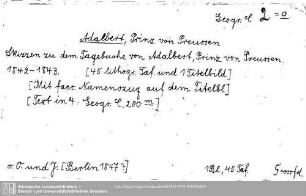 Geogr. C 2 = o
Adalbert, Prinz von Preussen
Skizzen zu dem Tagebuche von Adalbert, Prinz von Preussen
1842-1843. [45 lithogr. Taf. und 1 Titelbild]
[Mit facs. Namenszug auf dem Titelbl.]
[Text in 4: Geogr. C, 200 m]
o. O. und J. [Berlin 1847?]
1 Bl., 45 Taf.